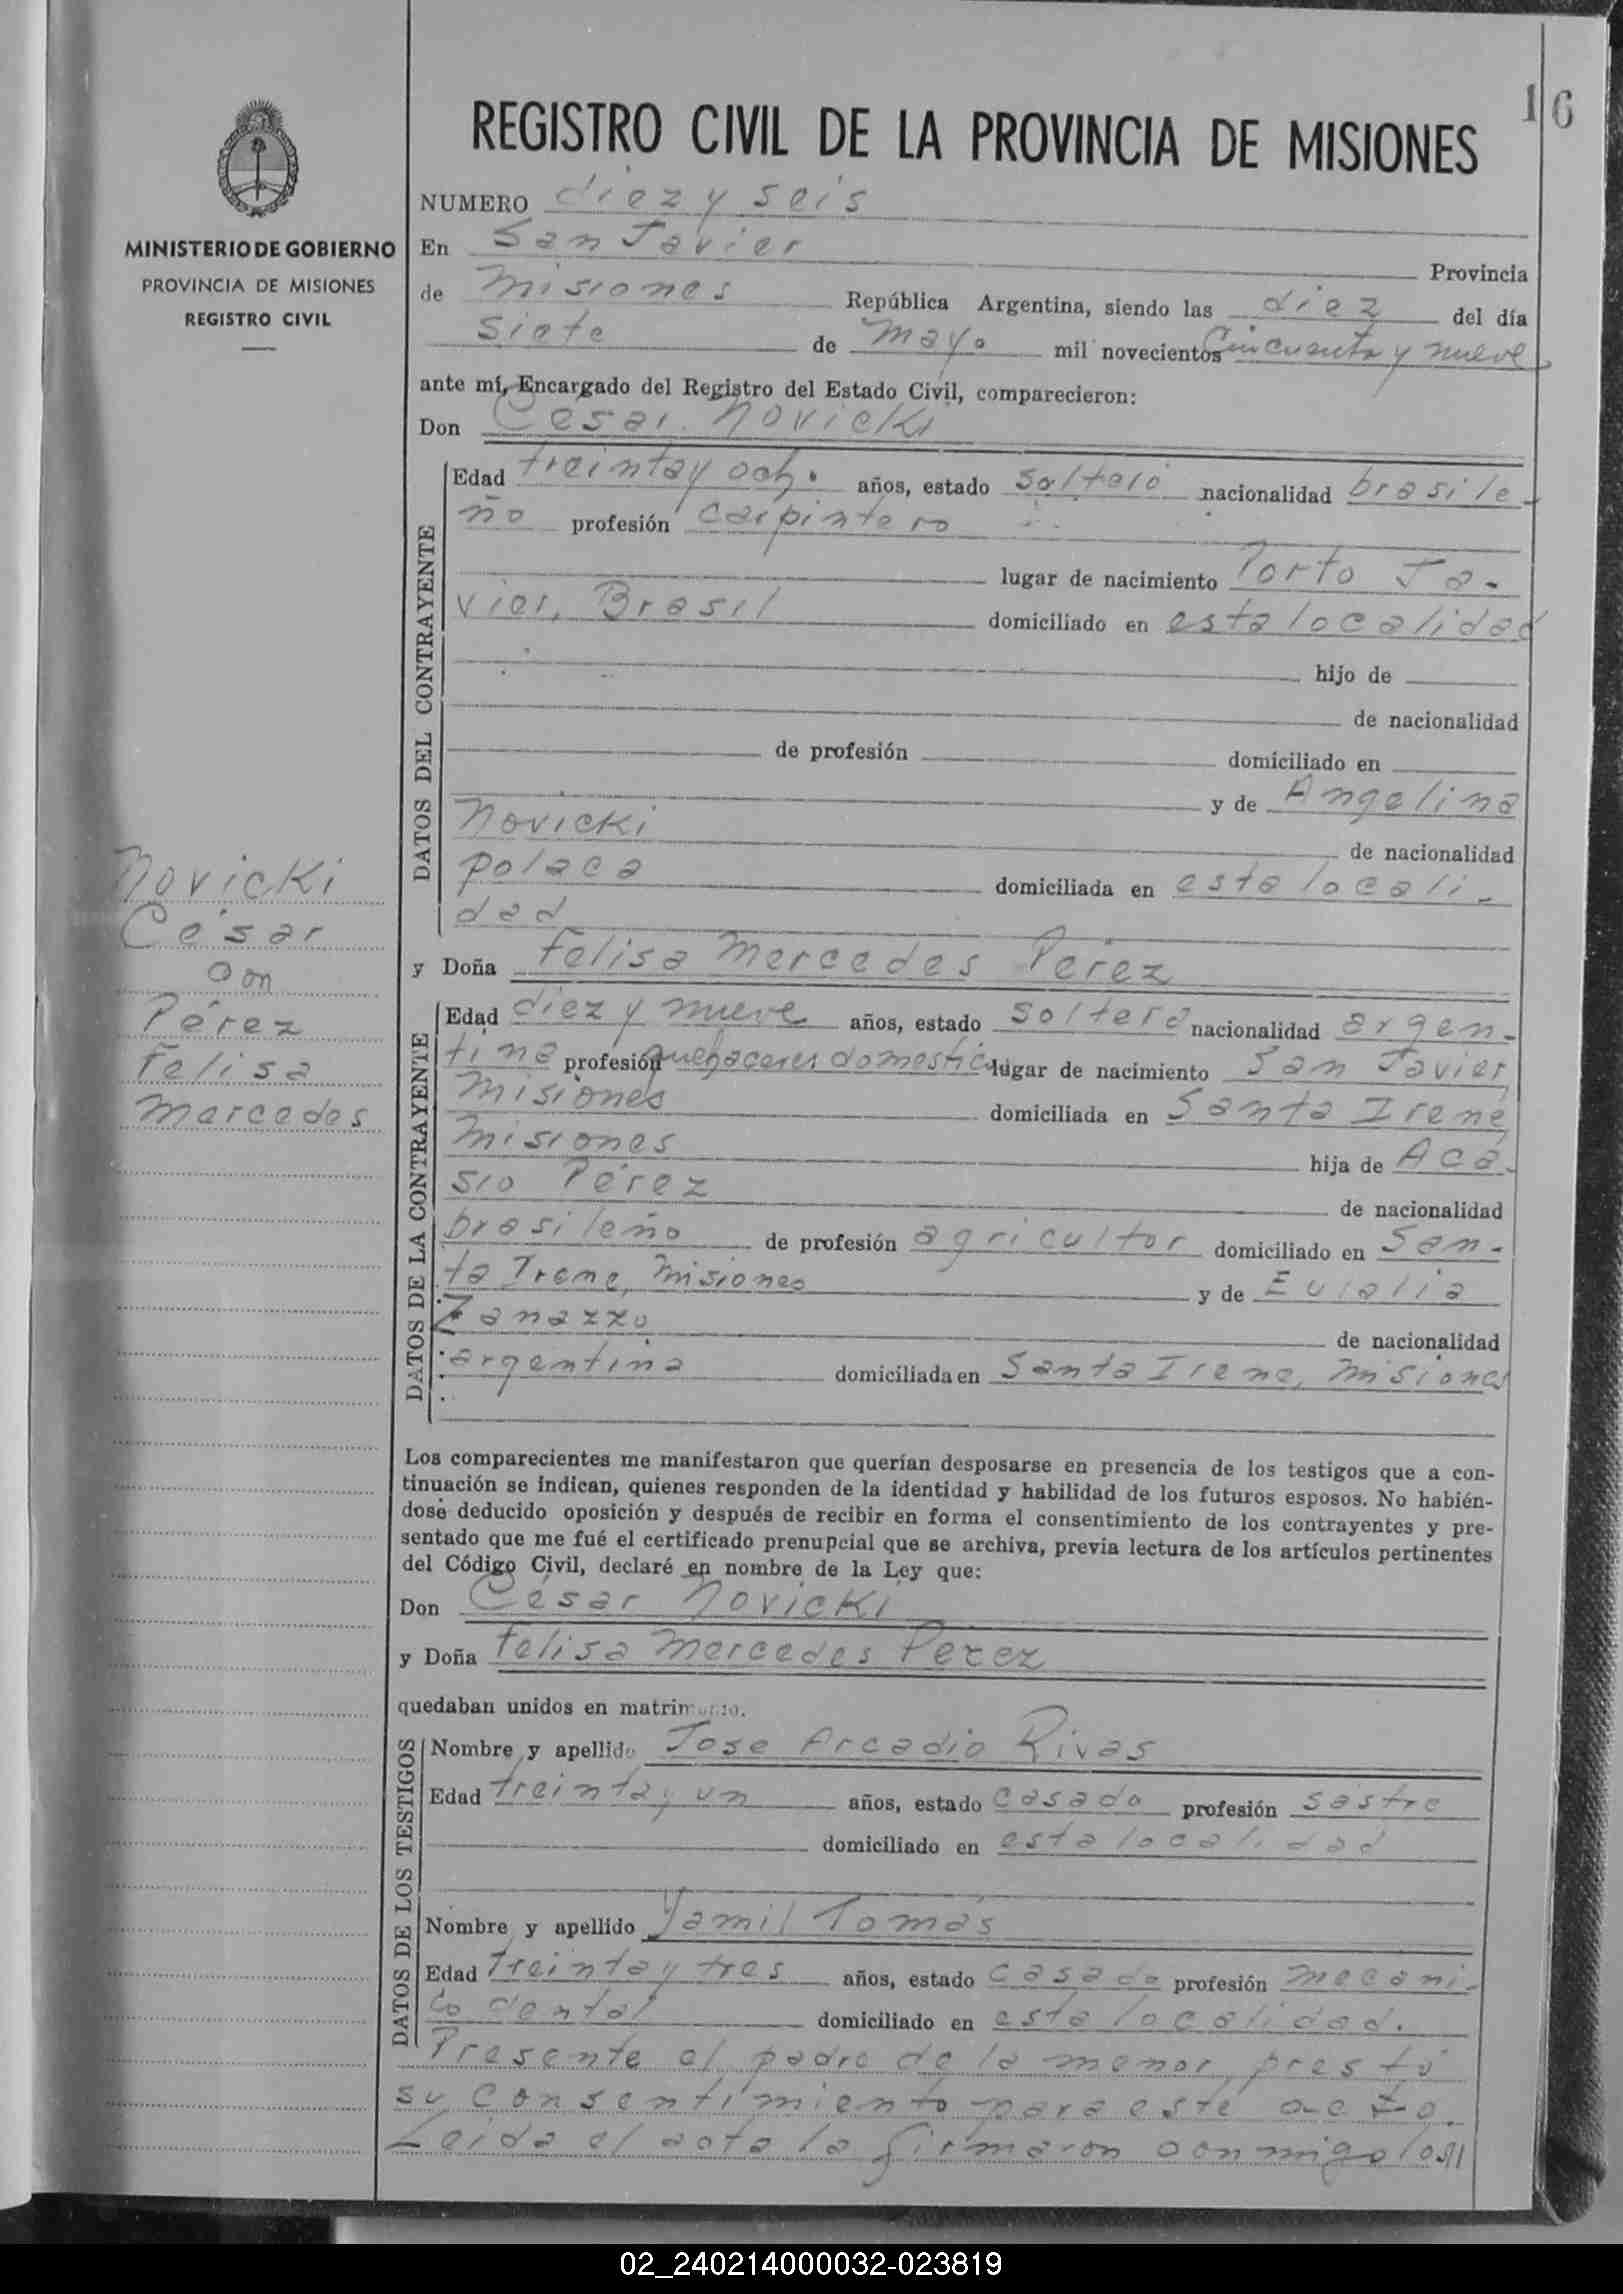 16
REGISTRO CIVIL DE LA PROVINCIA DE MISIONES
MINISTERIO DE GOBIERNO
PROVINCIA DE MISIONES
REGISTRO CIVIL
NUMERO diez y seis
En San Javier Provincia
de Misiones República Argentina, siendo las diez del día
siete de Mayo mil novecientos Cincuenta y nueve
ante mí, Encargado del Registro del Estado Civil, comparecieron:
Don Cesar Novicki
DATOS DEL CONTRAYENTE
Edad treinta y ocho años, estado soltero nacionalidad brasile-
ño profesión carpintero
lugar de nacimiento Porto Ja-
vier, Brasil domiciliado en esta localidad
hijo de
de nacionalidad
de profesión domiciliado en
y de Angelina
Novicki de nacionalidad
polaca domiciliada en esta locali-
dad
Novicki
César
con
Pérez
Felisa
Mercedes
y Doña Felisa Mercedes Pérez
DATOS DE LA CONTRAYENTE
Edad diez y nueve años, estado soltera nacionalidad argen-
tina profesión quehaceres domesticos lugar de nacimiento San Javier,
Misiones domiciliada en Santa Irene,
Misiones hija de Aca-
sio Pérez de nacionalidad
brasileño de profesión agricultor domiciliado en San-
ta Irene, Misiones y de Eulalia
Zanazzo de nacionalidad
argentina domiciliada en Santa Irene, Misiones
Los comparecientes me manifestaron que querían desposarse en presencia de los testigos que a con-
tinuación se indican, quienes responden de la identidad y habilidad de los futuros esposos. No habién-
dose deducido oposición y después de recibir en forma el consentimiento de los contrayentes y pre-
sentado que me fué el certificado prenupcial que se archiva, previa lectura de los artículos pertinentes
del Código Civil, declaré en nombre de la Ley que:
Don César Novicki
y Doña Felisa Mercedes Pérez
quedaban unidos en matrimonio.
DATOS DE LOS TESTIGOS
Nombre y apellido Jose Arcadio Rivas
Edad treinta y un años, estado casado profesión sastre
domiciliado en esta localidad
Nombre y apellido Yamil Tomás
Edad treinta y tres años, estado casado profesión mecáni-
co dental domiciliado en esta localidad.
Presente el padre de la menor, prestó
su consentimiento para este acto.
Leida el acta la firmaron conmigo los
02_240214000032-023819